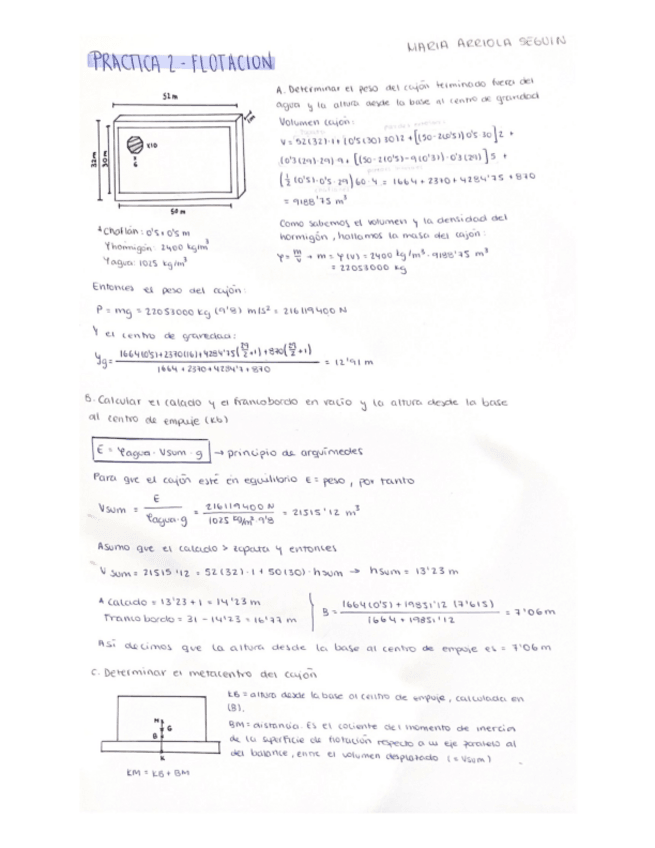 MARIA ARRIOLA SEGUIN
PRACTICA 2 - FLOTACION
52m
1m
32m
30m
x10
6
50m
A. Determinar el peso del cajón terminado fuera del
agua y la altura desde la base al centro de gravedad
Volumen cajón:
V = 52(32)·1 + (0'5(30)30)2 + [(50-2(0'5))0'5·30]2 +
(0'3(29)·29)·9 + [(50-2(0'5)-9(0'3))·0'3(29)]5 +
(½(0'5)·0'5·29)60·4 = 1664 + 2370 + 4284'75 + 870
= 9188'75 m³
* Chaflán: 0'5 x 0'5 m
γhormigón: 2400 kg/m³
γagua: 1025 kg/m³
Como sabemos el volumen y la densidad del
hormigón, hallamos la masa del cajón:
γ = m/v → m = γ(v) = 2400 kg/m³ · 9188'75 m³
= 22053000 kg
Entonces el peso del cajón:
P = mg = 22053000 kg (9'8) m/s² = 216119400 N
Y el centro de gravedad:
yg = 1664(0'5)+2370(16)+4284'75(29/2+1)+870(29/2+1) / 1664+2370+4284'7+870 = 12'91 m
B. Calcular el calado y el francobordo en vacío y la altura desde la base
al centro de empuje (Kb)
E = φagua · Vsum · g → principio de arquímedes
Para que el cajón esté en equilibrio E = peso, por tanto
Vsum = E / φagua·g = 216119400 N / 1025 kg/m³·9'8 = 21515'12 m³
Asumo que el calado > zapata y entonces
Vsum = 21515'12 = 52(32)·1 + 50(30)·hsum → hsum = 13'23 m
* Calado = 13'23 + 1 = 14'23 m
Francobordo = 31 - 14'23 = 16'77 m
B = 1664(0'5) + 19851'12 (7'615) / 1664 + 19851'12 = 7'06 m
Así decimos que la altura desde la base al centro de empuje es = 7'06 m
C. Determinar el metacentro del cajón
M
G
B
K
KM = KB + BM
KB = altura desde la base al centro de empuje, calculada en
(B).
BM = distancia. Es el cociente del momento de inercia
de la superficie de flotación respecto a un eje paralelo al
del balance, entre el volumen desplazado (= Vsum)